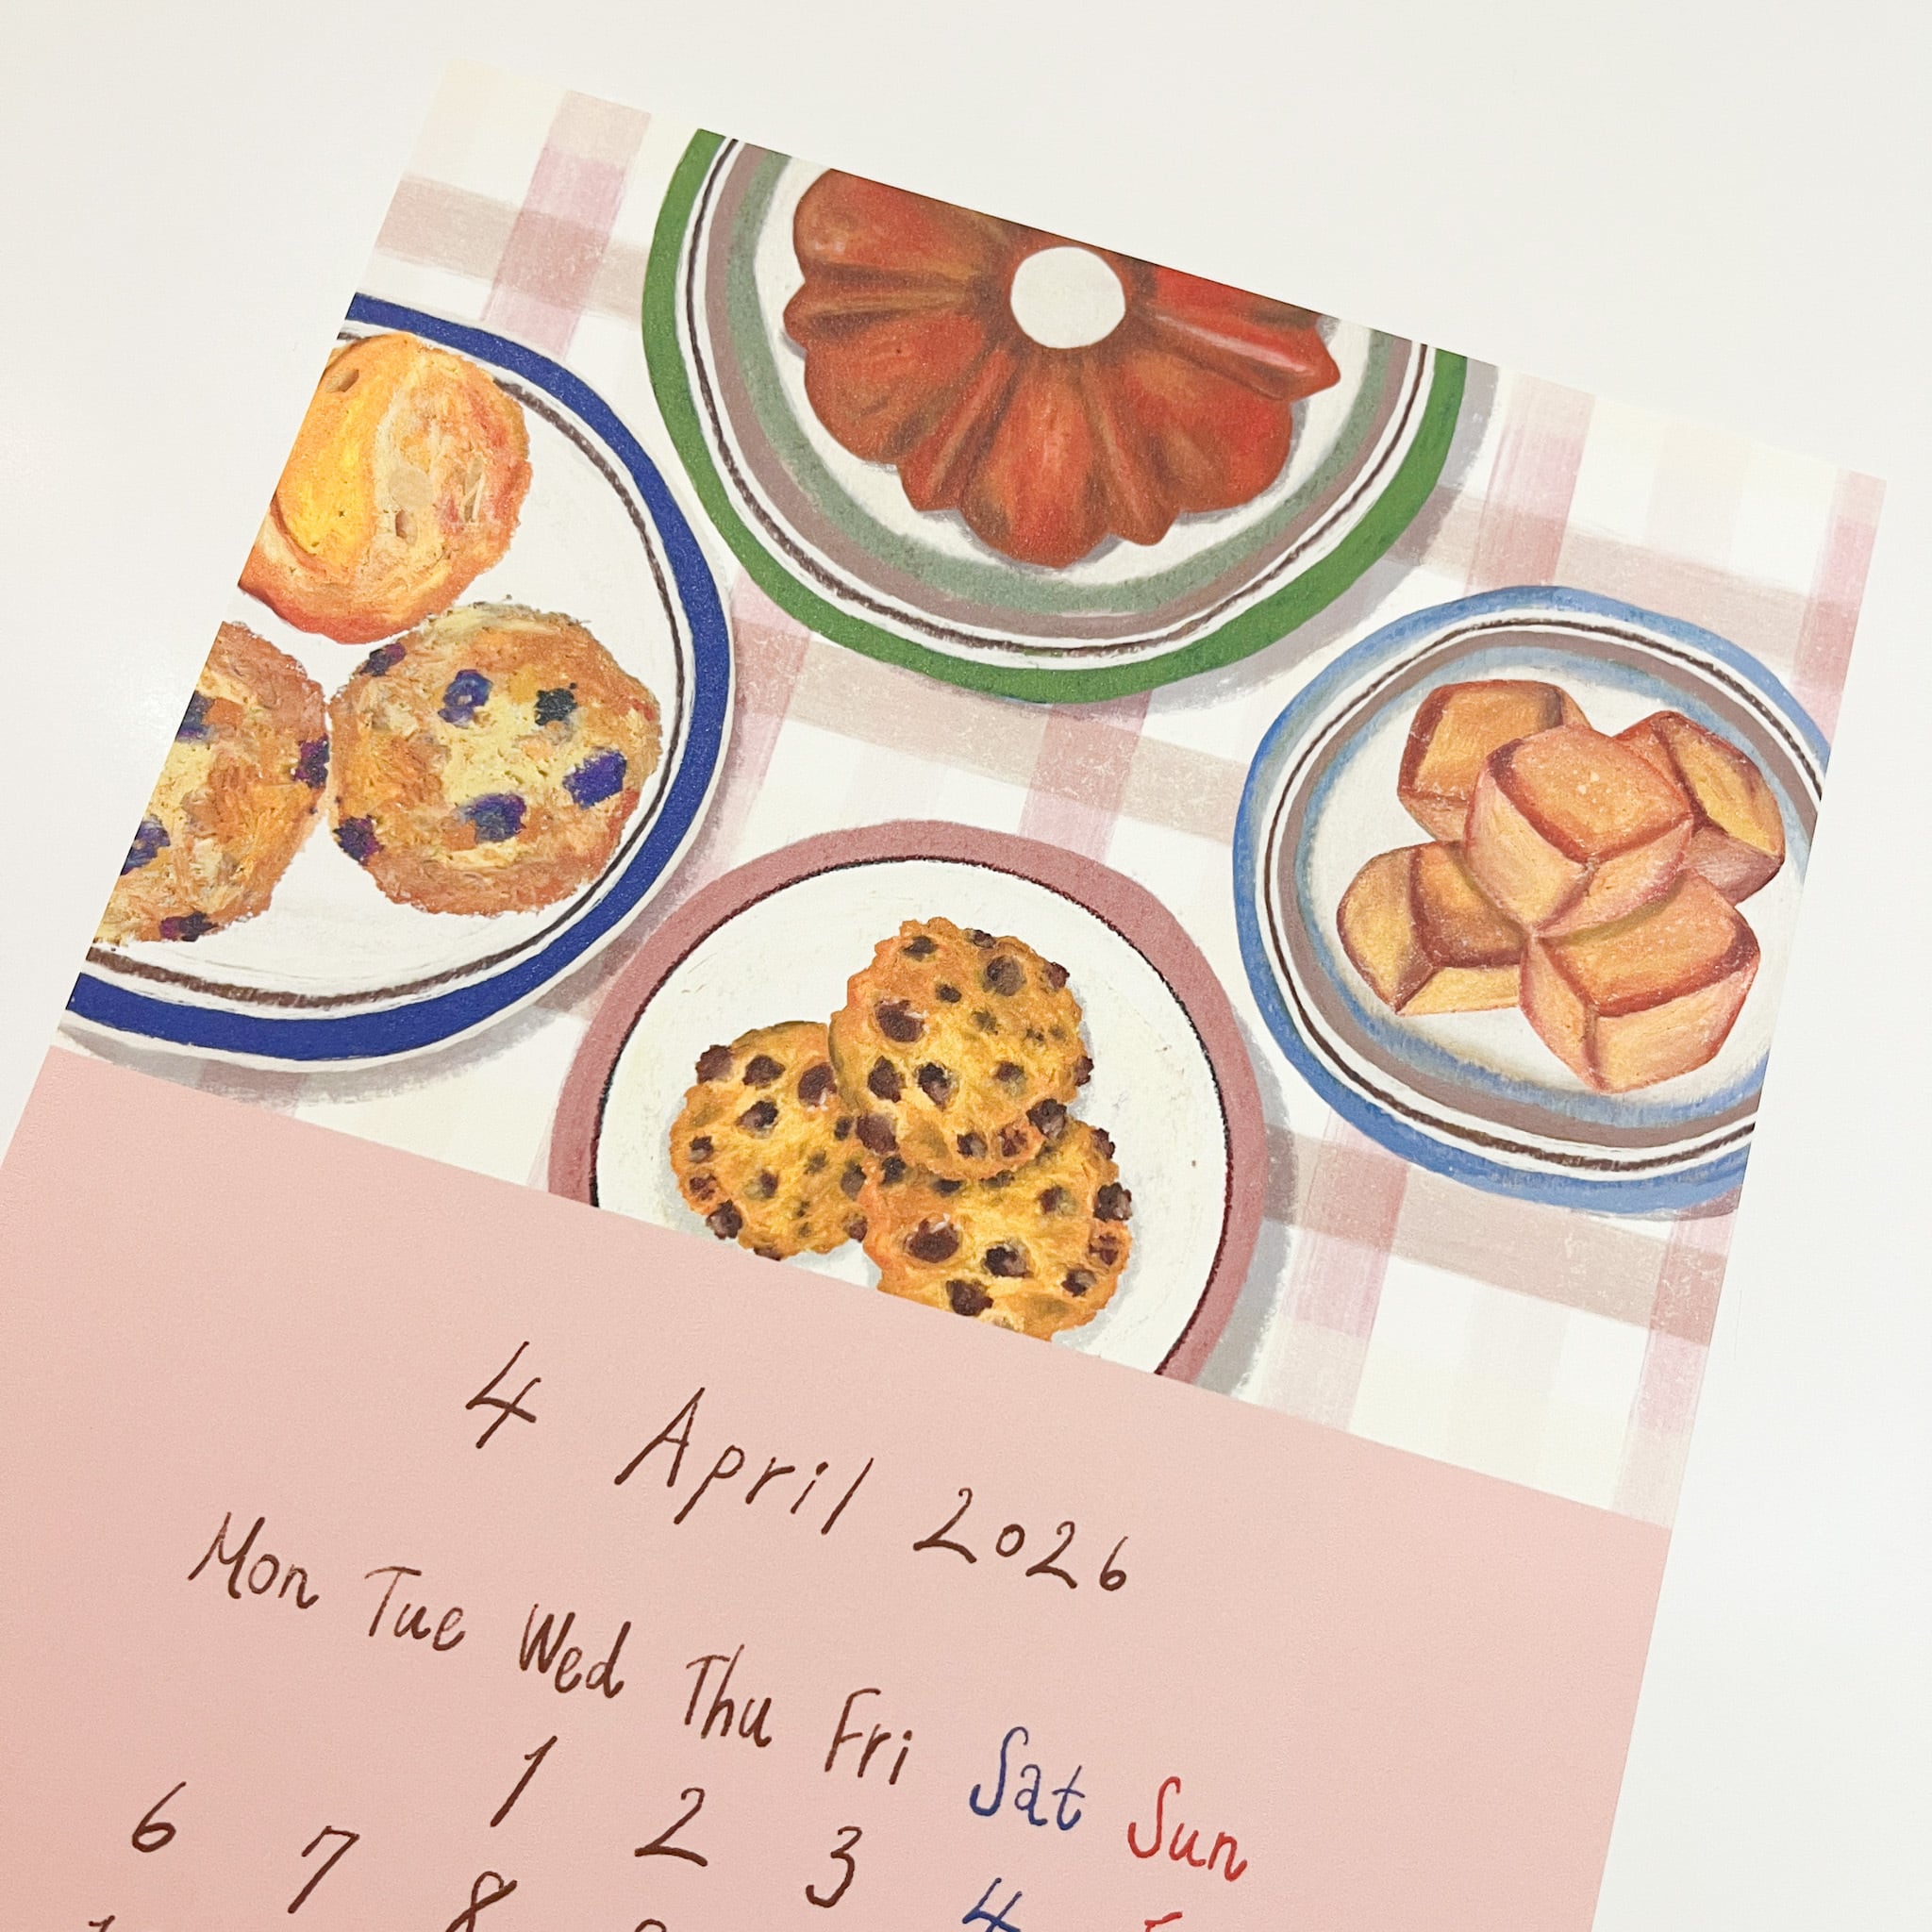 4 April 2026
Mon Tue Wed Thu Fri Sat Sun
1 2 3 4
6 7 8